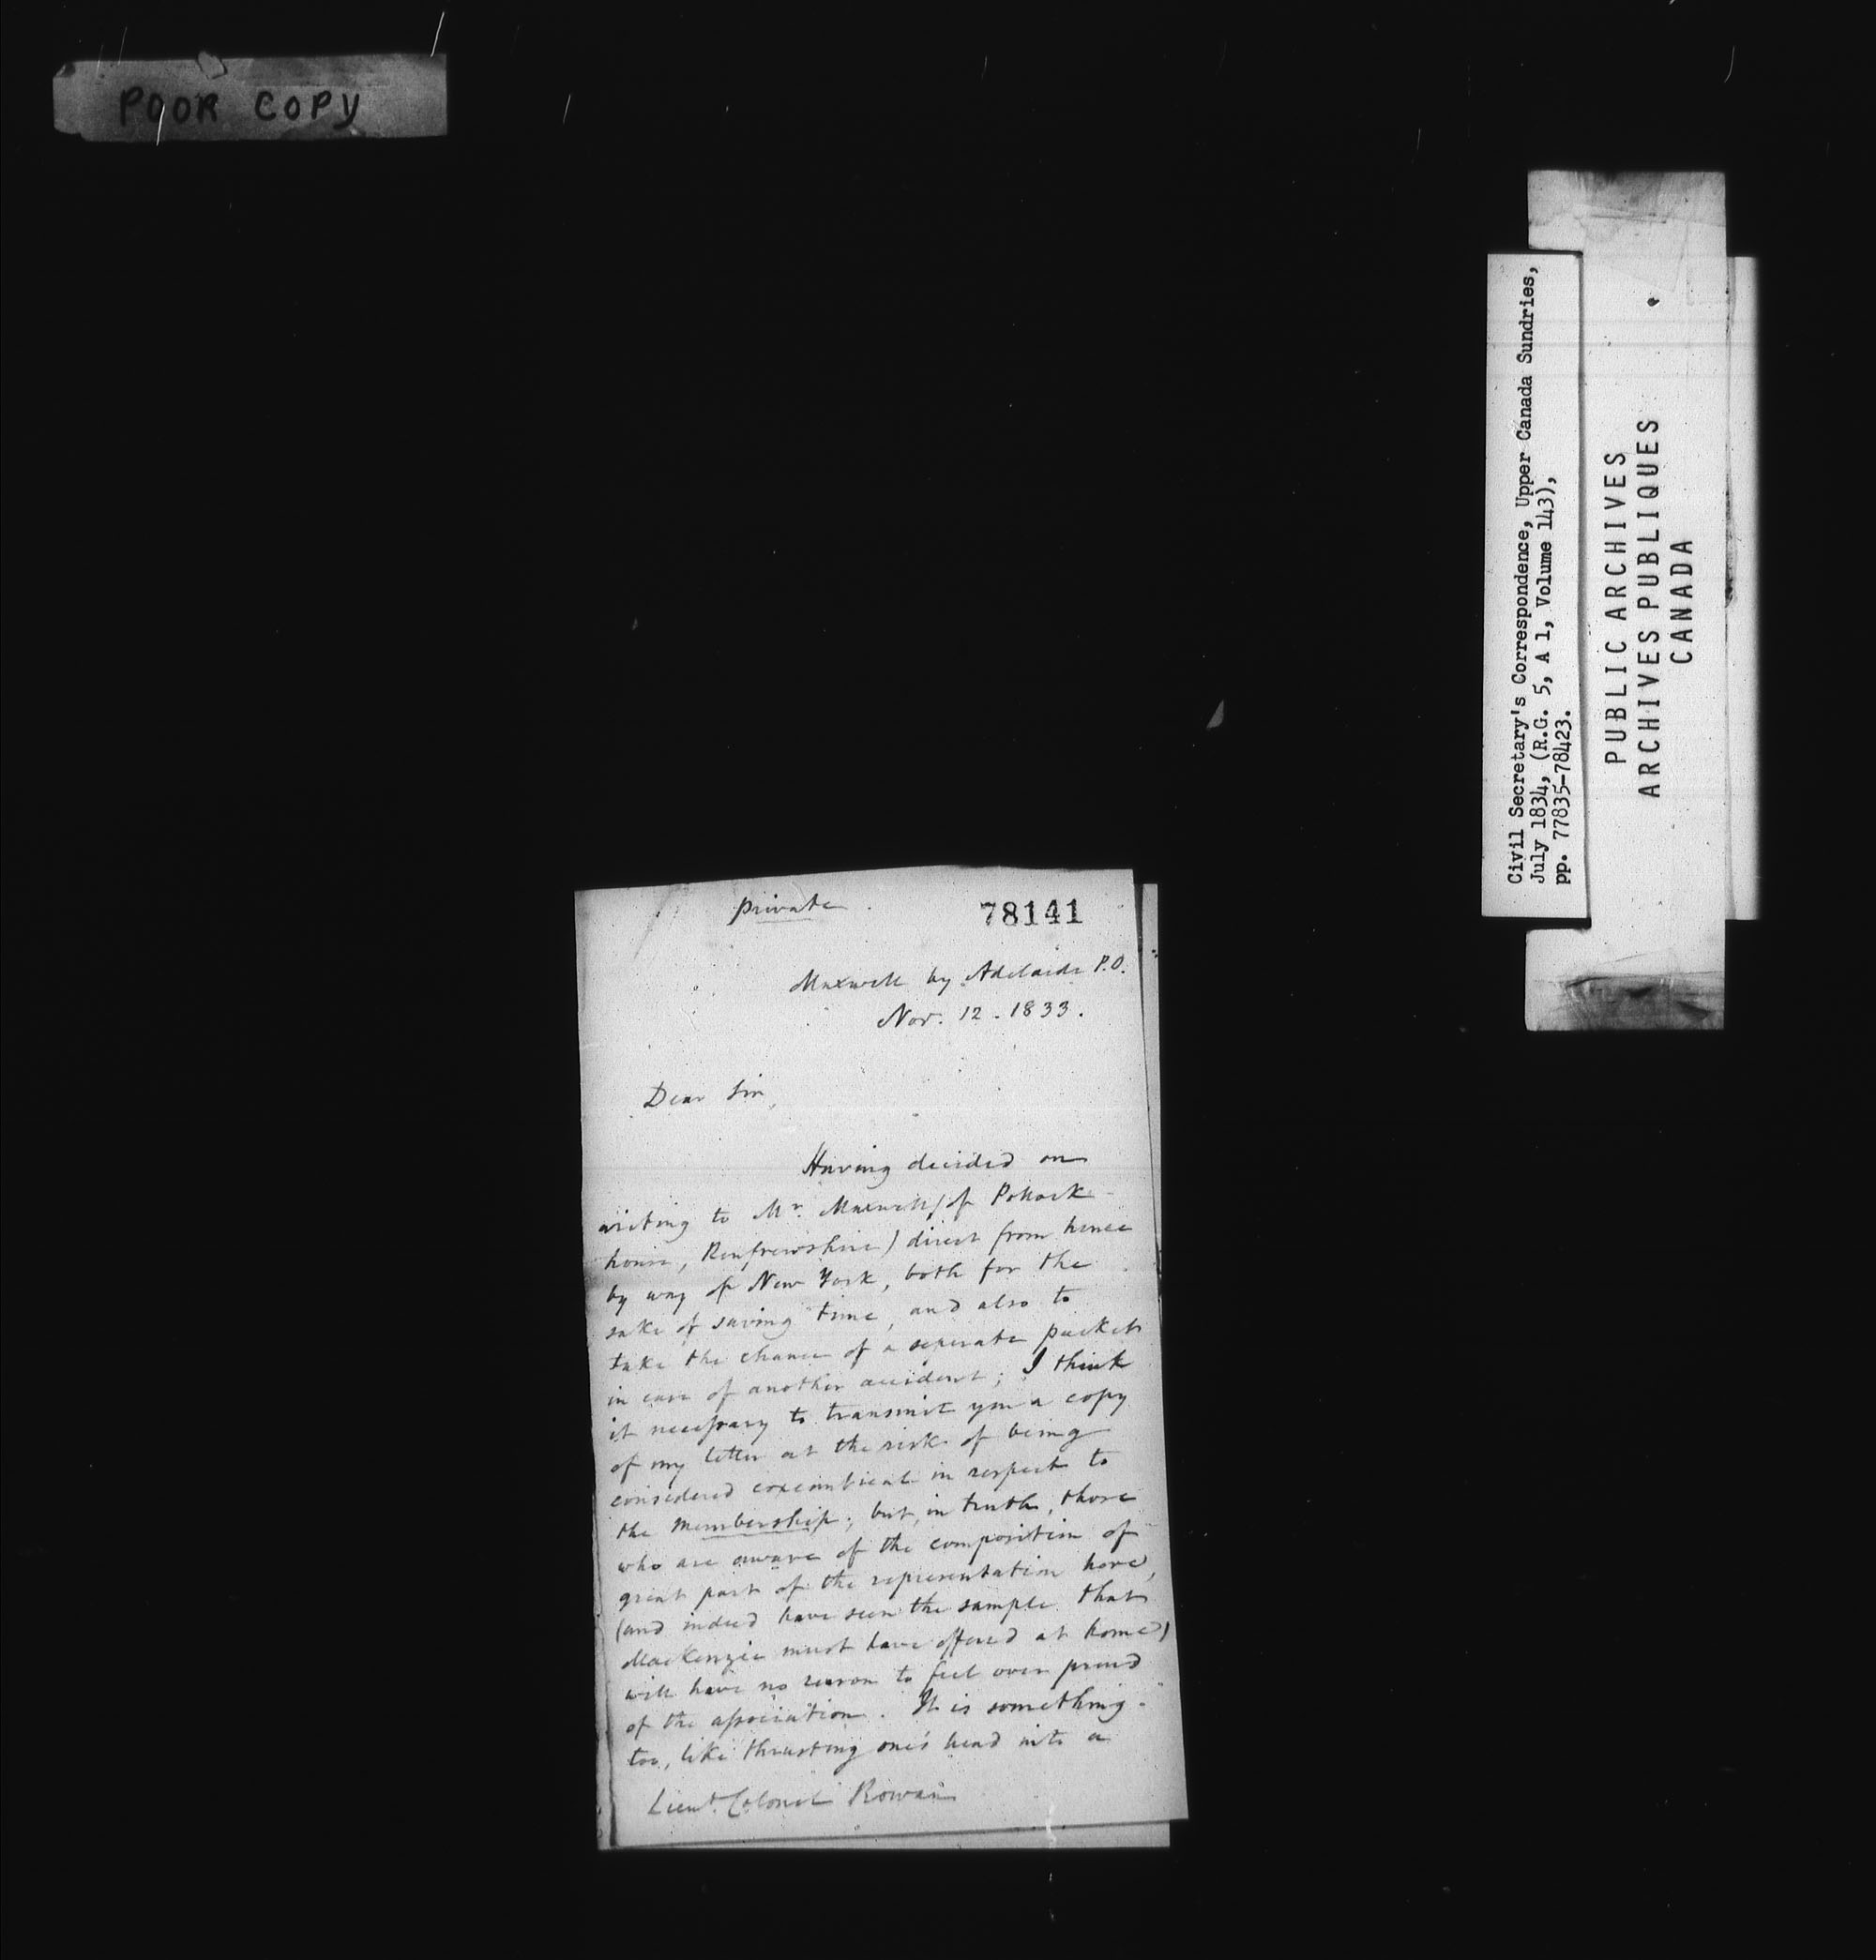 POOR COPY
Civil Secretary's Correspondence, Upper Canada Sundries,
July 1834, (R.G. 5, A 1, Volume 143),
pp. 77835-78423.
PUBLIC ARCHIVES
ARCHIVES PUBLIQUES
CANADA
private
78141
Maxwell by Adelaide P.O.
Nov. 12 - 1833.
Dear Sir,
Having decided on
writing to Mr. Maxwell (of Pollock
house, Renfrewshire) direct from hence
by way of New York, both for the
sake of saving time, and also to
take the chance of a seperate packet
in case of another accident; I think
it necessary to transmit you a copy
of my letter at the risk of being
considered coxcombical in respect to
the membership; but, in truth, those
who are aware of the composition of
great part of the representation here,
(and indeed have seen the sample that
MacKenzie must have offered at home)
will have no reason to feel over proud
of the association. It is something
too, like thrusting one's head into a
Lieut. Colonel Rowan